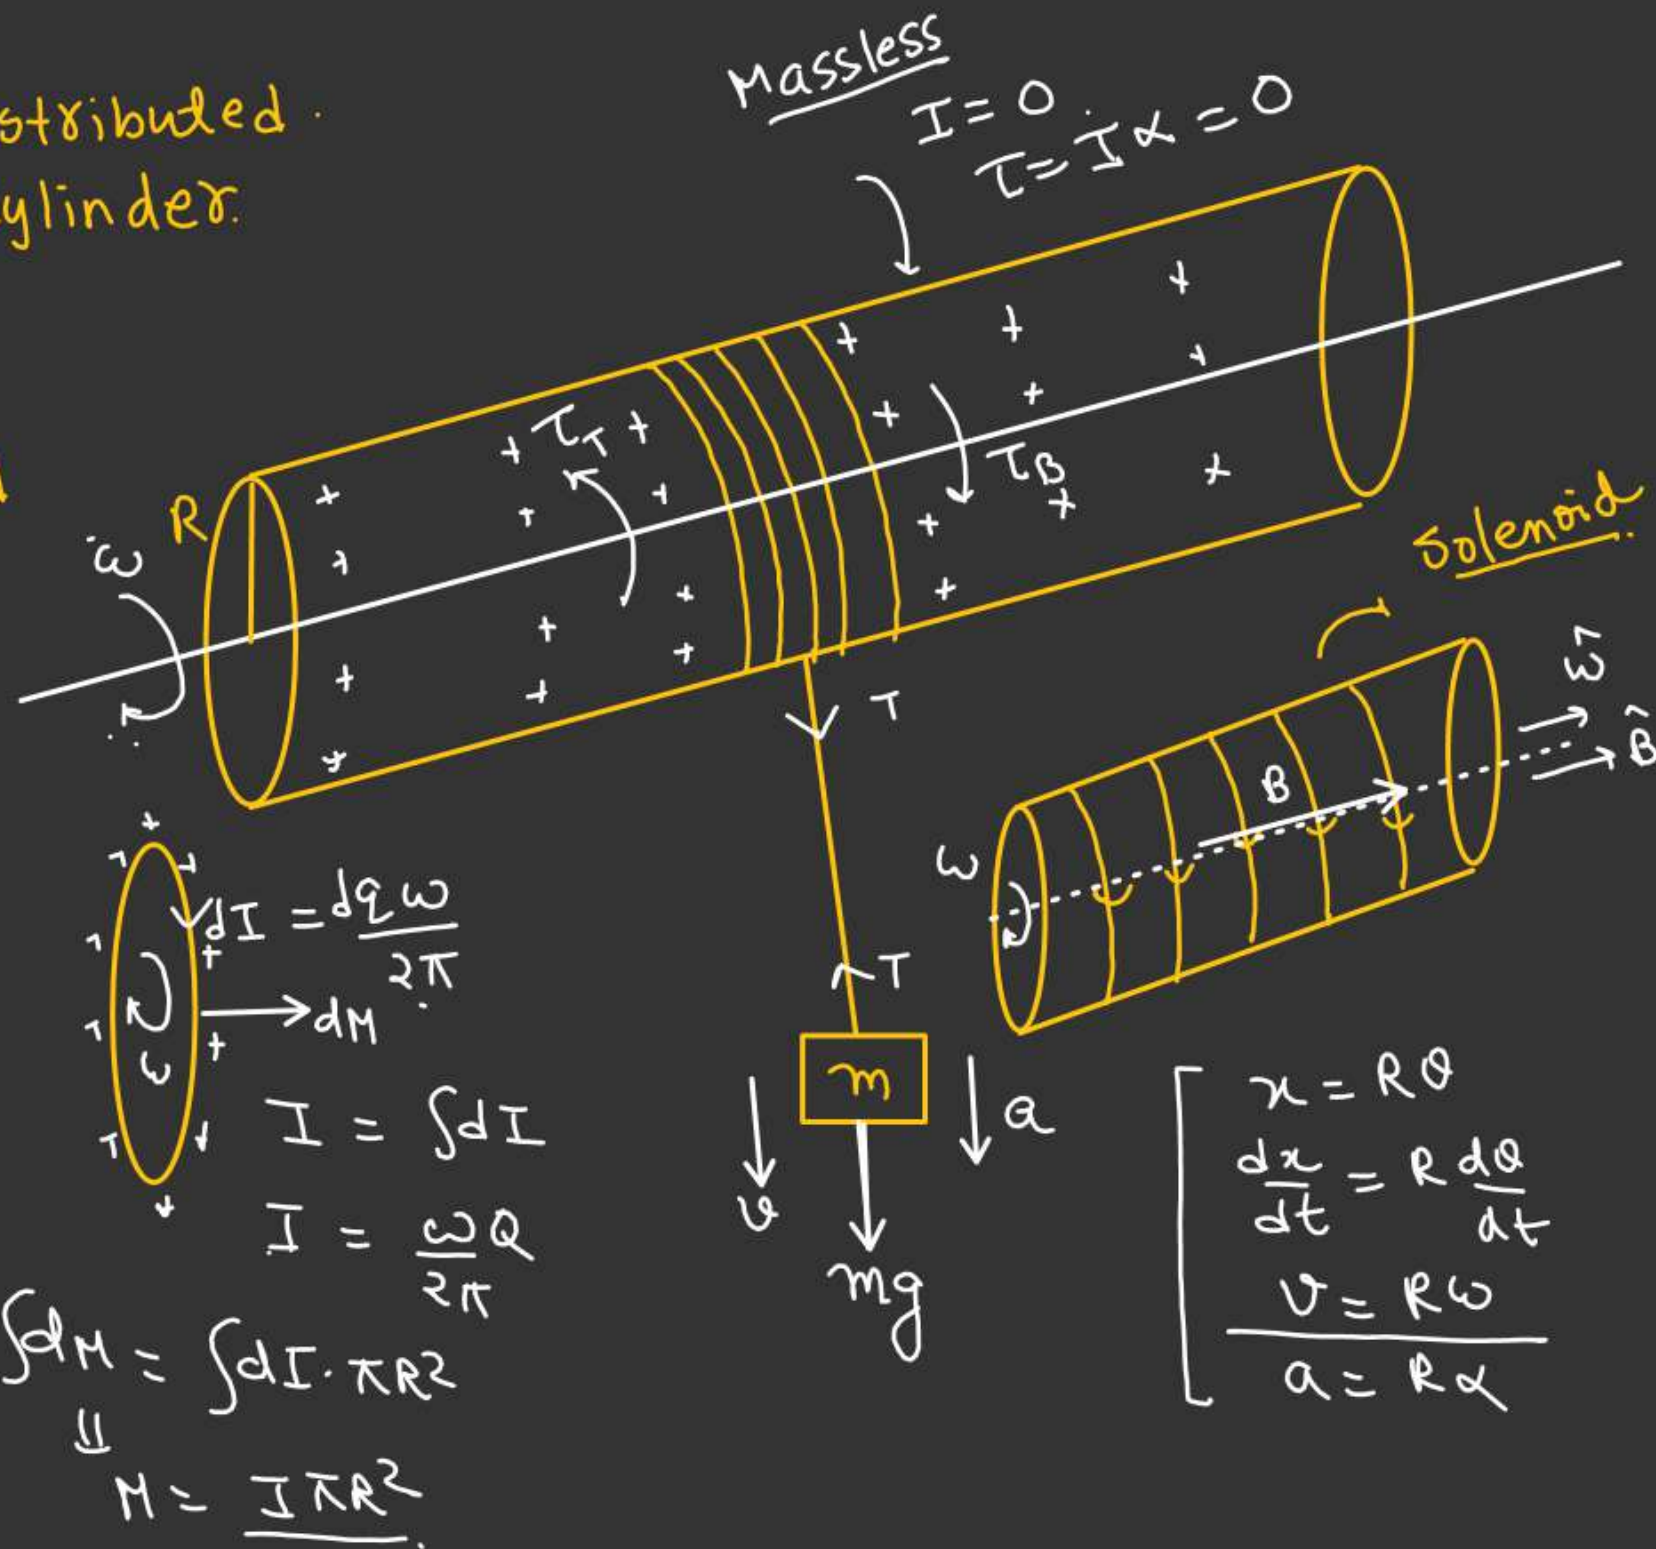 stributed.
ylinder.
Massless
I = 0
τ = Iα = 0
R
ω
τ_T
τ_B
T
Solenoid
ω̂
B̂
B
ω
dI = dqω / 2π
dM
ω
I = ∫dI
I = ωQ / 2π
∫dM = ∫dI · πR²
॥
M = IπR²
T
m
a
v
mg
x = Rθ
dx/dt = R dθ/dt
v = Rω
a = Rα